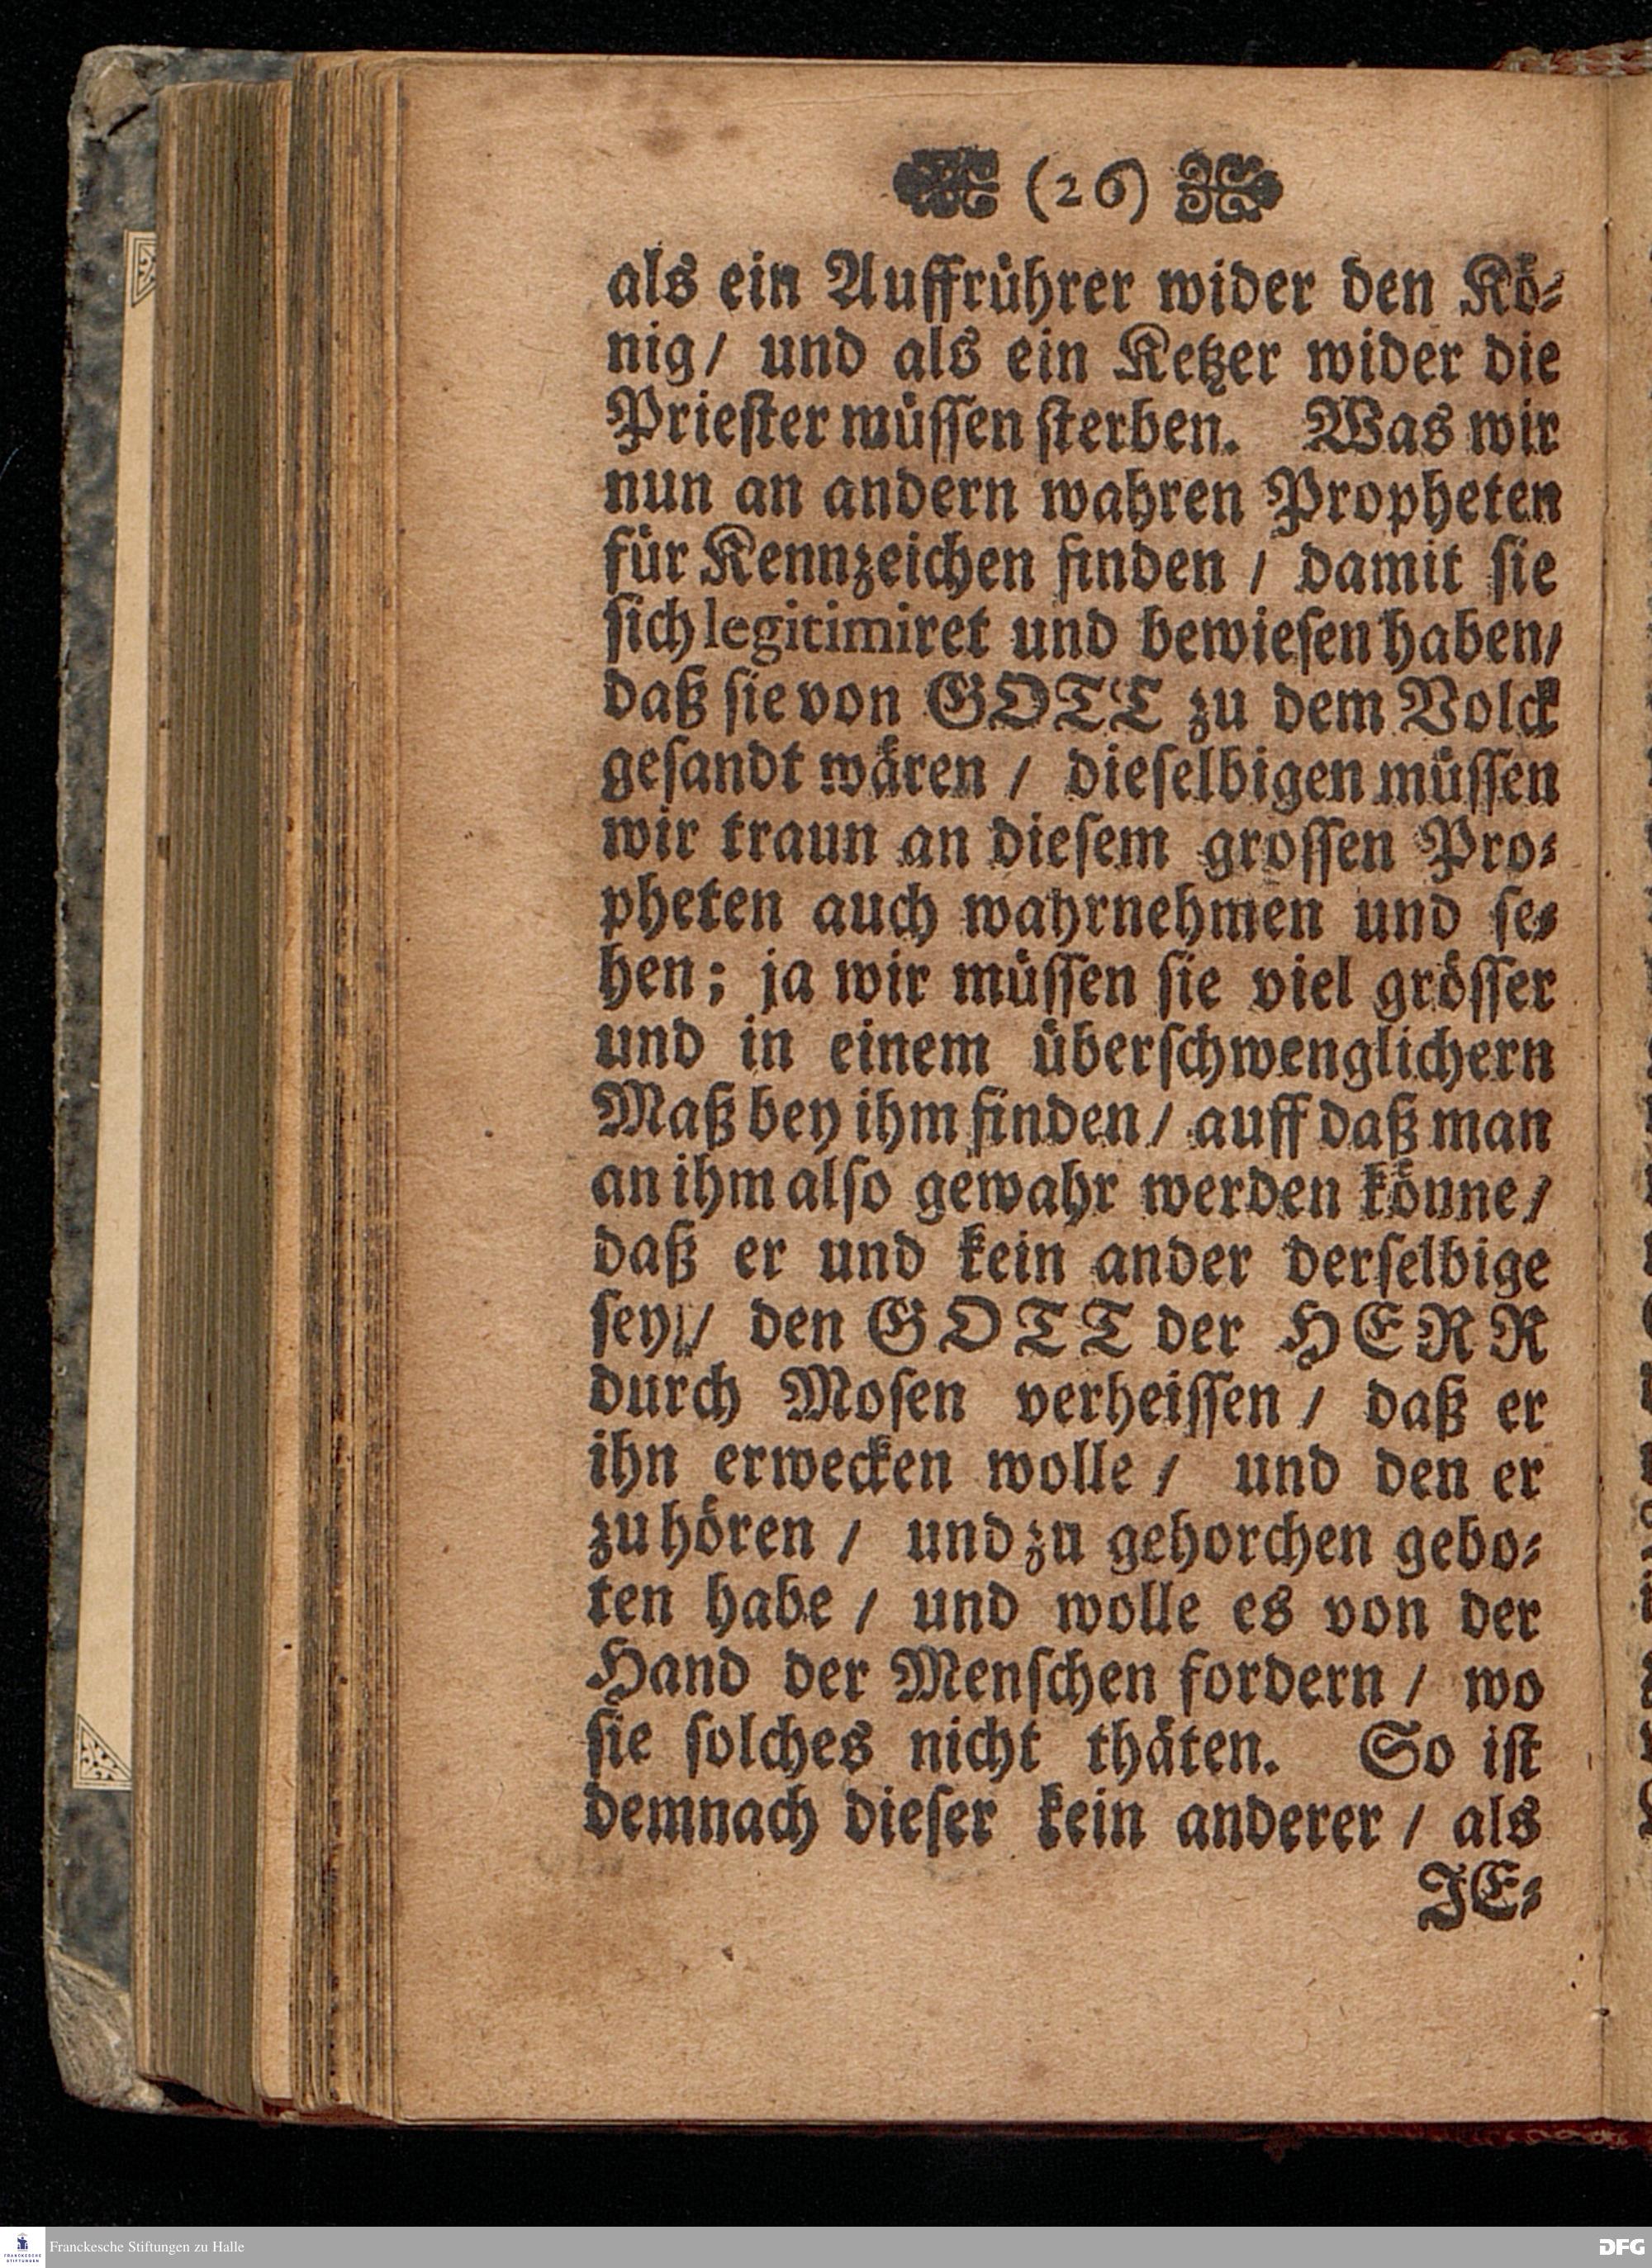 (26)
als ein Auffrührer wider den Kö-
nig/ und als ein Ketzer wider die
Priester müssen sterben. Was wir
nun an andern wahren Propheten
für Kennzeichen finden / damit sie
sich legitimiret und bewiesen haben/
daß sie von GOTT zu dem Volck
gesandt wären / dieselbigen müssen
wir traun an diesem grossen Pro-
pheten auch wahrnehmen und se-
hen; ja wir müssen sie viel grösser
und in einem überschwenglichern
Maß bey ihm finden/ auff daß man
an ihm also gewahr werden könne/
daß er und kein ander derselbige
sey/ den GOTT der HERR
durch Mosen verheissen / daß er
ihn erwecken wolle / und den er
zu hören / und zu gehorchen gebo-
ten habe / und wolle es von der
Hand der Menschen fordern / wo
sie solches nicht thäten. So ist
demnach dieser kein anderer / als
JE-
FRANCKESCHE STIFTUNGEN
Franckesche Stiftungen zu Halle
DFG